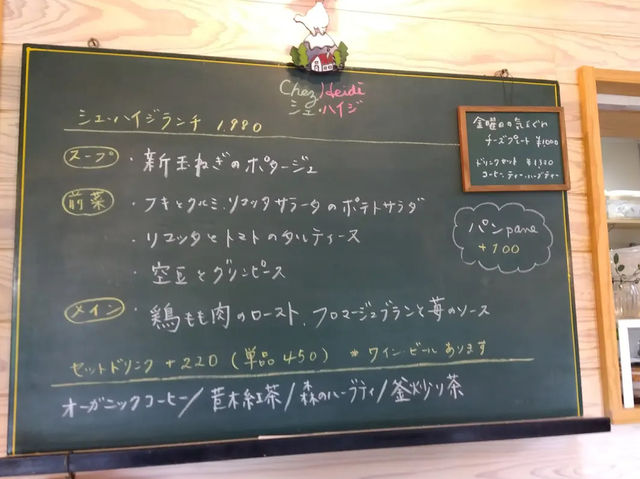 Chez Heidi
シェ・ハイジ
シェ・ハイジランチ 1,980
スープ ・新玉ねぎのポタージュ
前菜 ・フキとクルミ、リコッタサラータのポテトサラダ
・リコッタとトマトのタルティーヌ
・空豆とグリンピース
メイン ・鶏もも肉のロースト、フロマージュブランと苺のソース
セットドリンク +220 (単品450) *ワイン・ビールあります
オーガニックコーヒー/菅木紅茶/森のハーブティ/釜炒り茶
金曜日の気まぐれ
チーズプレート ¥1000
ドリンクセット ¥1300
コーヒー、ティー、ハーブティー
パン pane
+100